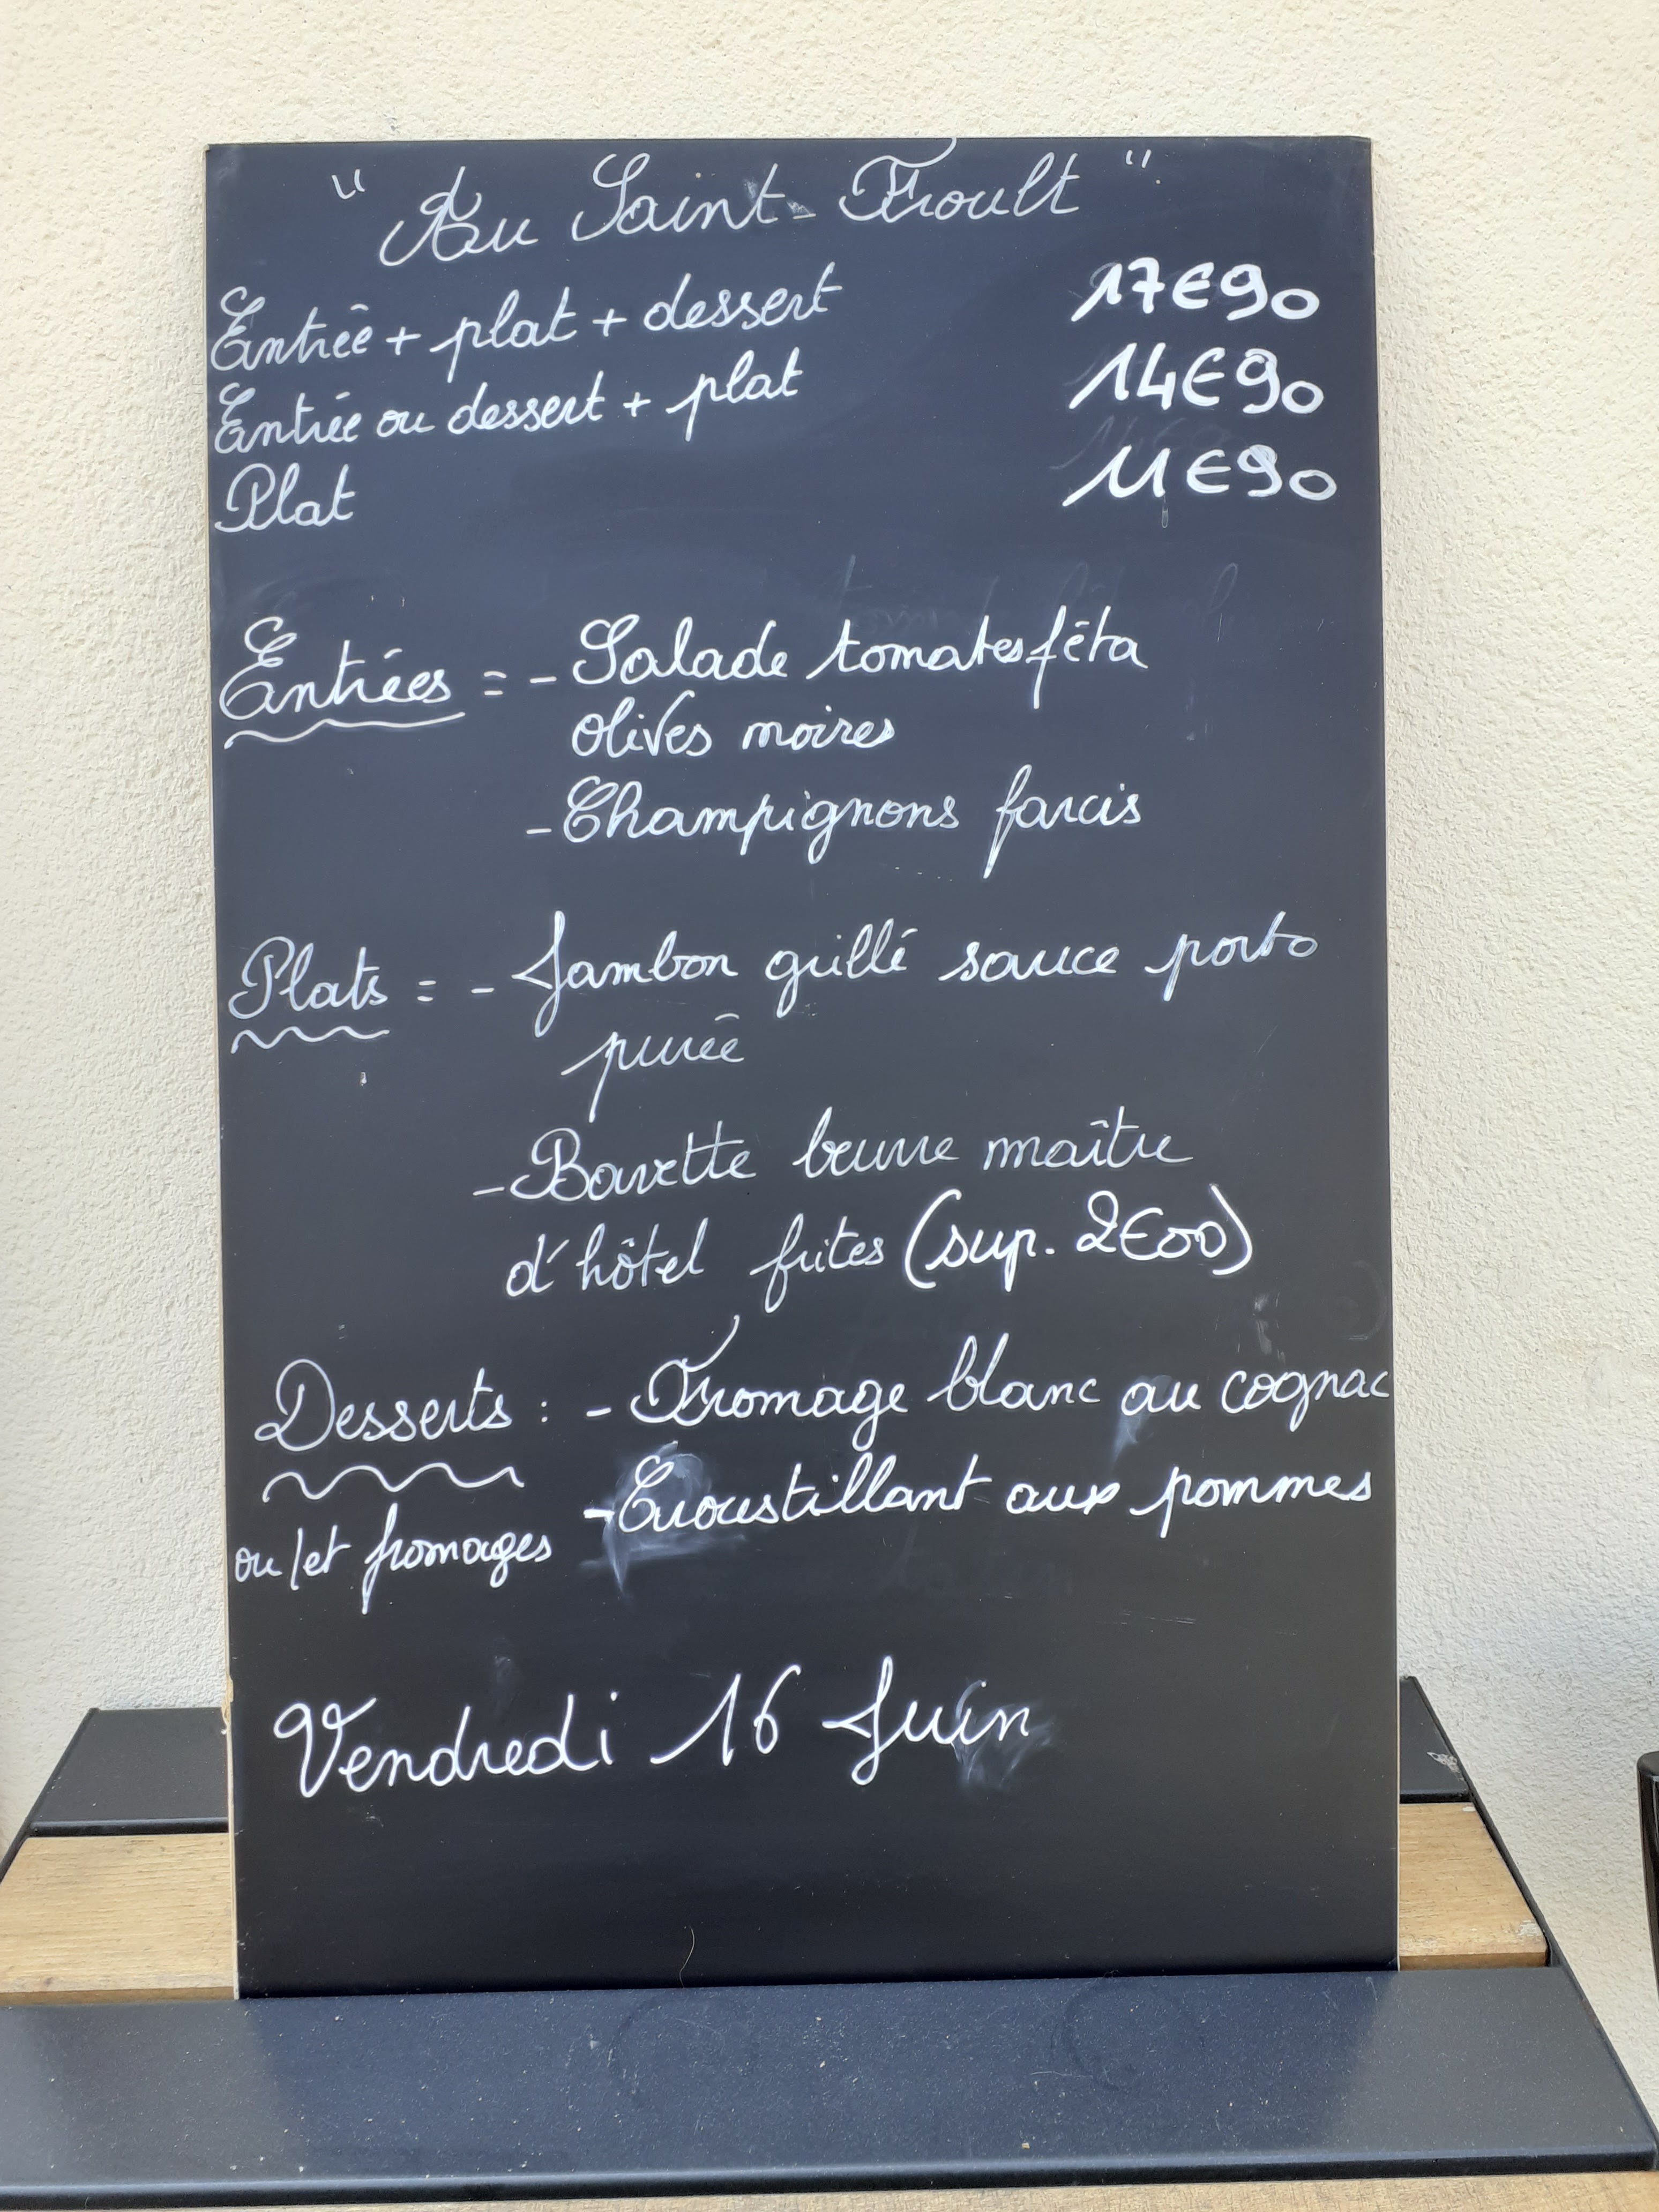 "Au Saint-Froult"
Entrée + plat + dessert 17€90
Entrée ou dessert + plat 14€90
Plat 11€90
Entrées = - Salade tomates fêta
olives noires
- Champignons farcis
Plats = - Jambon grillé sauce porto
purée
- Bavette beurre maître
d'hôtel frites (sup. 2€00)
Desserts : - Fromage blanc au cognac
ou/et fromages - Croustillant aux pommes
Vendredi 16 Juin